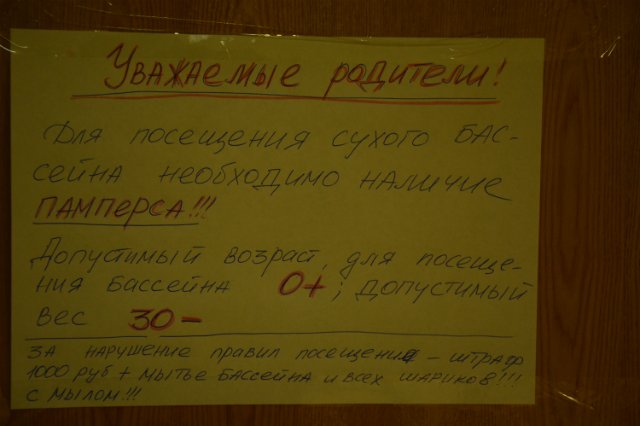 Уважаемые родители!
Для посещения сухого бас-
сейна необходимо наличие
ПАМПЕРСА!!!
Допустимый возраст, для посеще-
ния бассейна 0+; допустимый
вес 30-
За нарушение правил посещения - штраф
1000 руб + мытье бассейна и всех шариков!!!
с мылом!!!